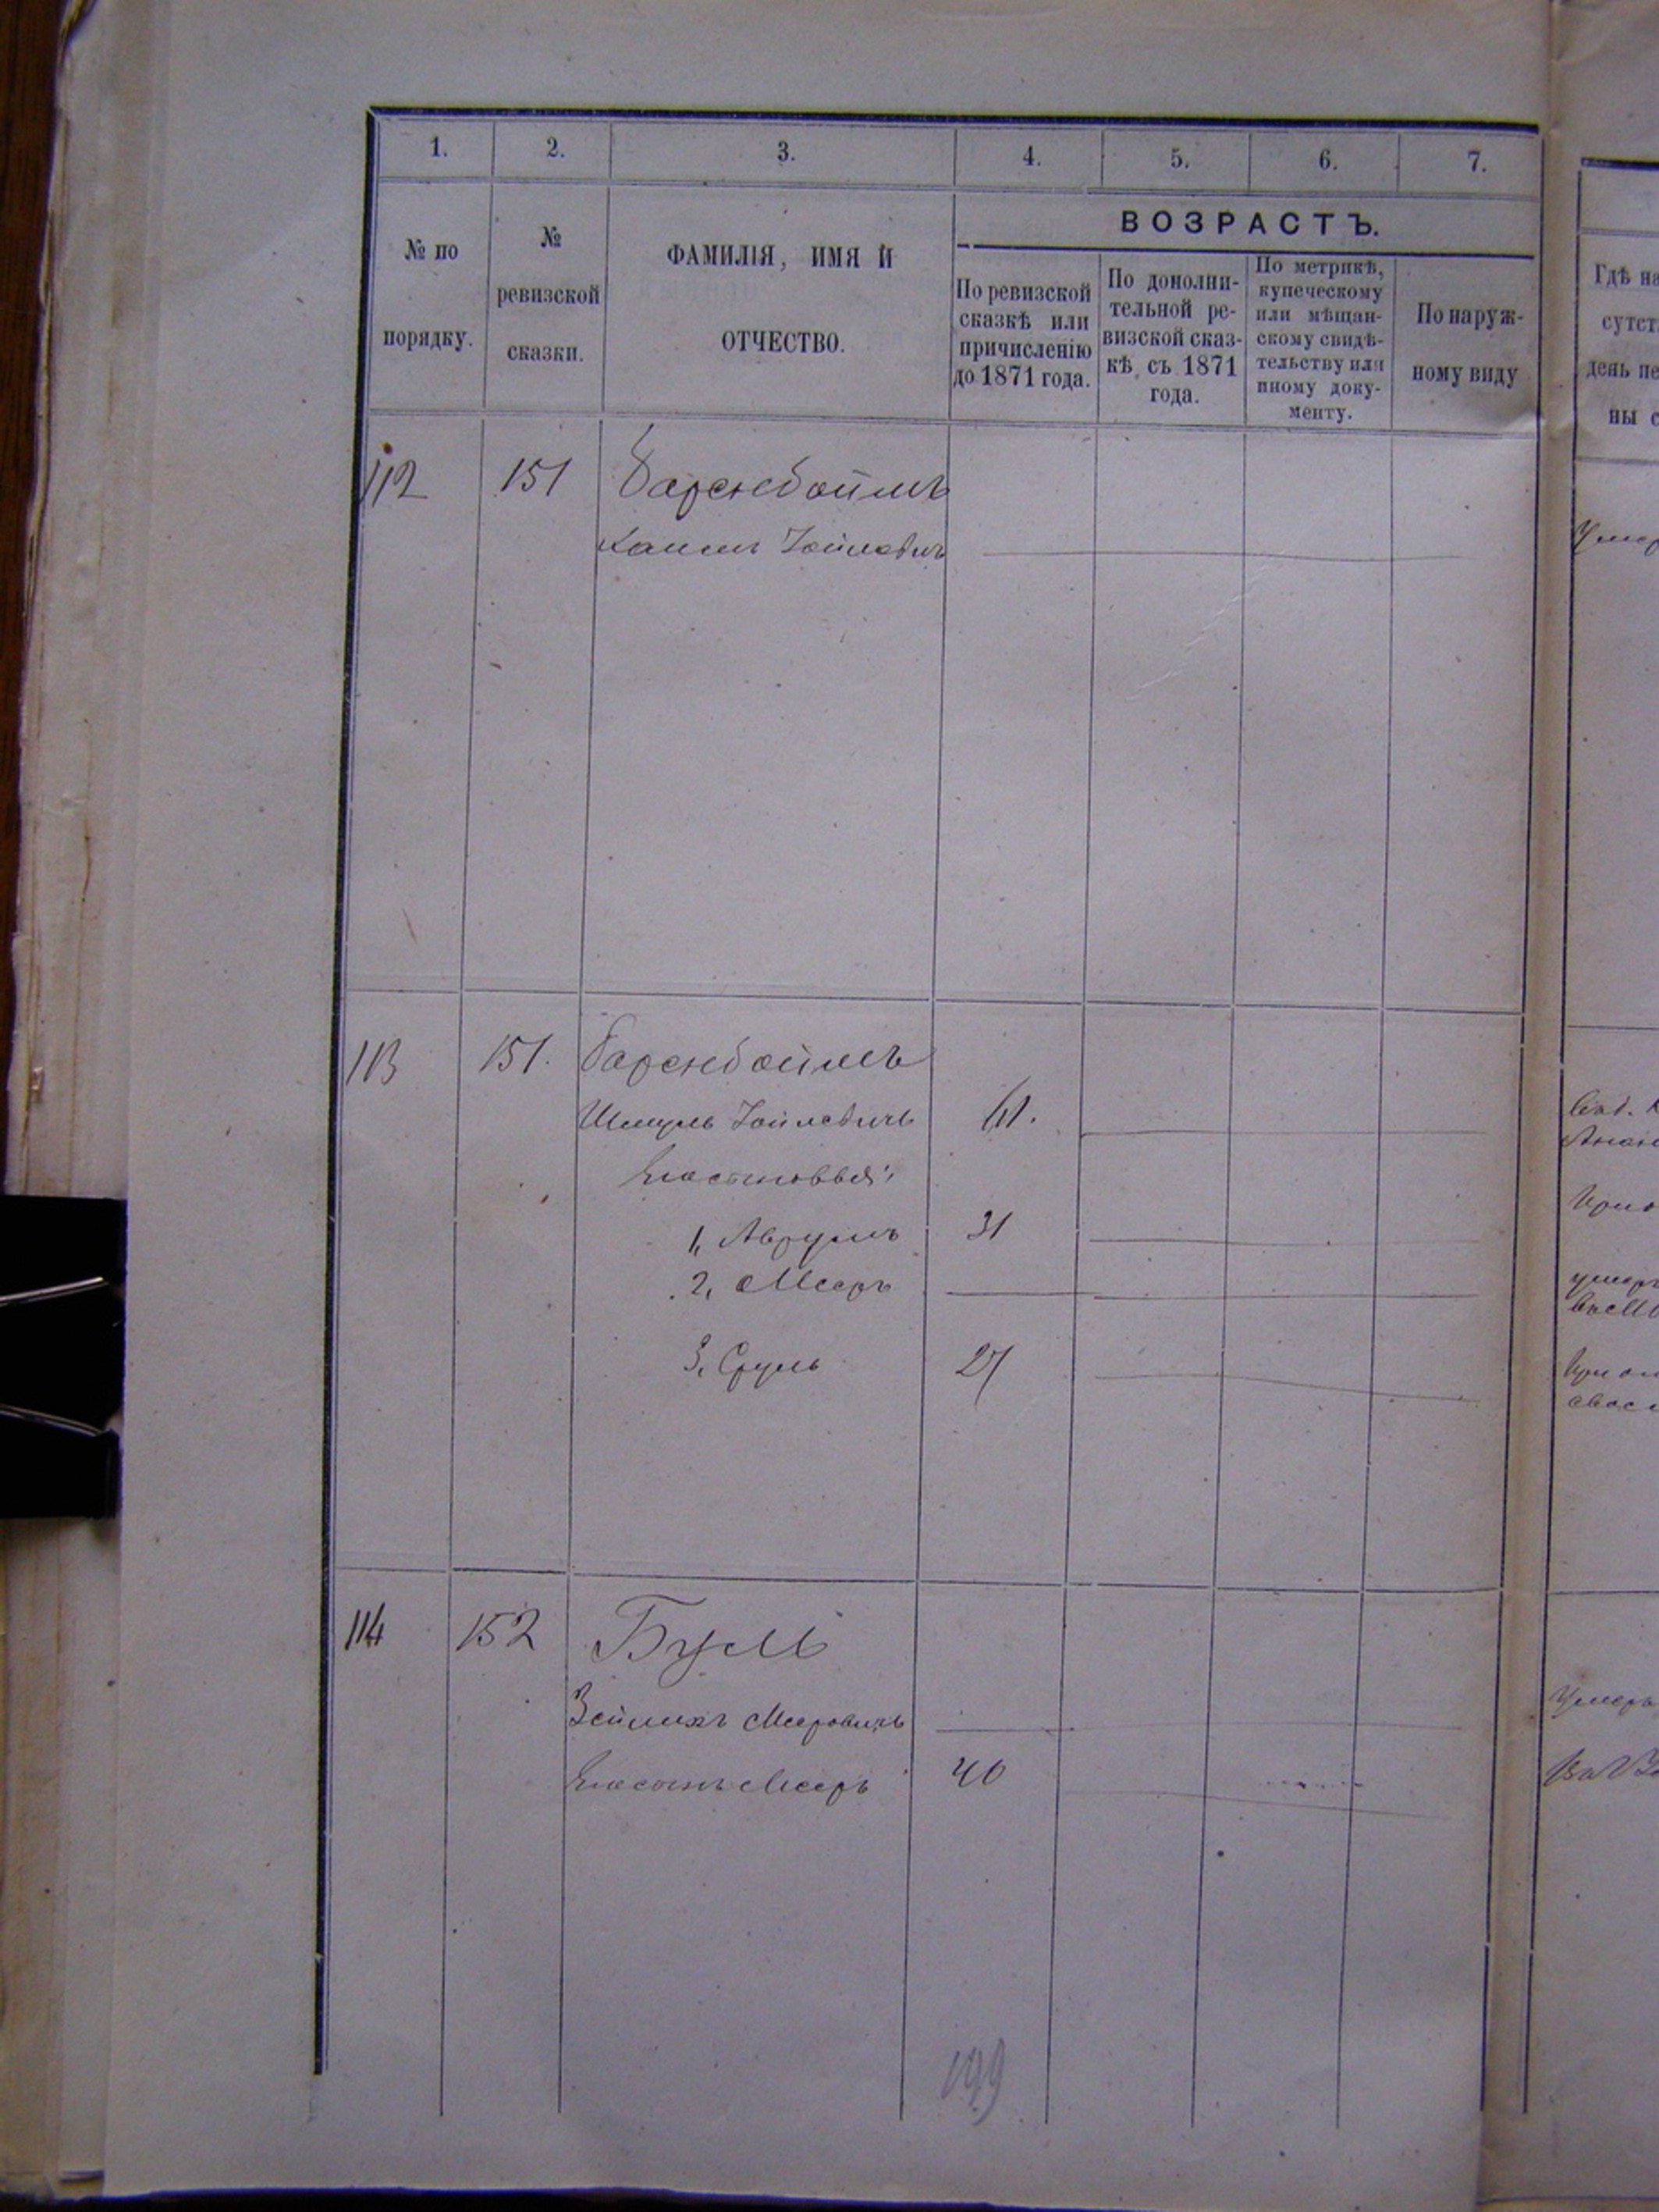 1. 2. 3. 4. 5. 6. 7.
№ по порядку.
№ ревизской сказки.
ФАМИЛІЯ, ИМЯ И
ОТЧЕСТВО.
ВОЗРАСТЪ.
По ревизской
сказкѣ или
причисленію
до 1871 года.
По дополни-
тельной ре-
визской сказ-
кѣ съ 1871
года.
По метрикѣ,
купеческому
или мѣщан-
скому свидѣ-
тельству или
иному доку-
менту.
По наруж-
ному виду
112 151 Баренбоймъ
113 151. Баренбоймъ
Шмуль Іойлевичъ 61.
1, Аврумъ 31
2, Мееръ
3, Сруль 27
114 152 Буль
Зейликъ Мееровичъ
Мееръ 40
199
Гдѣ
день
ны